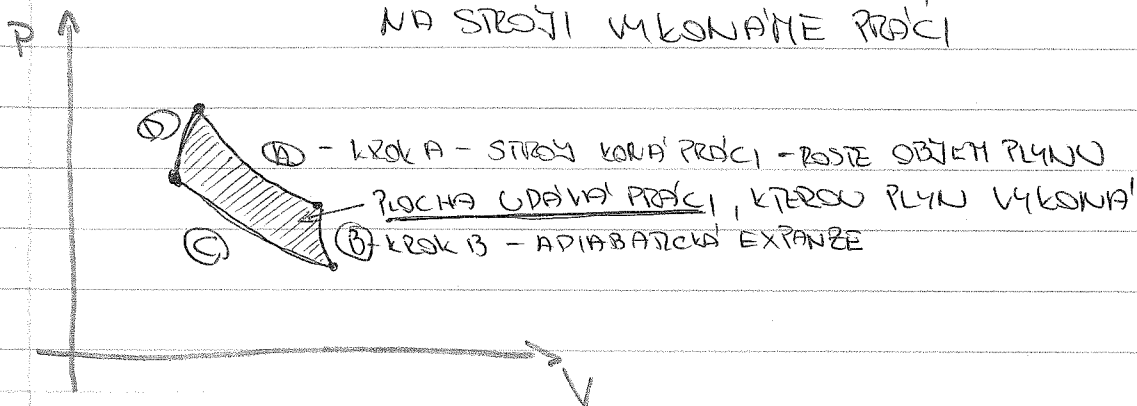 NA STROJI VYKONÁME PRÁCI
P
D
A - KROK A - STROJ KONÁ PRÁCI - ROSTE OBJEM PLYNU
PLOCHA UDÁVÁ PRÁCI, KTEROU PLYN VYKONÁ
C
B - KROK B - ADIABATICKÁ EXPANZE
V